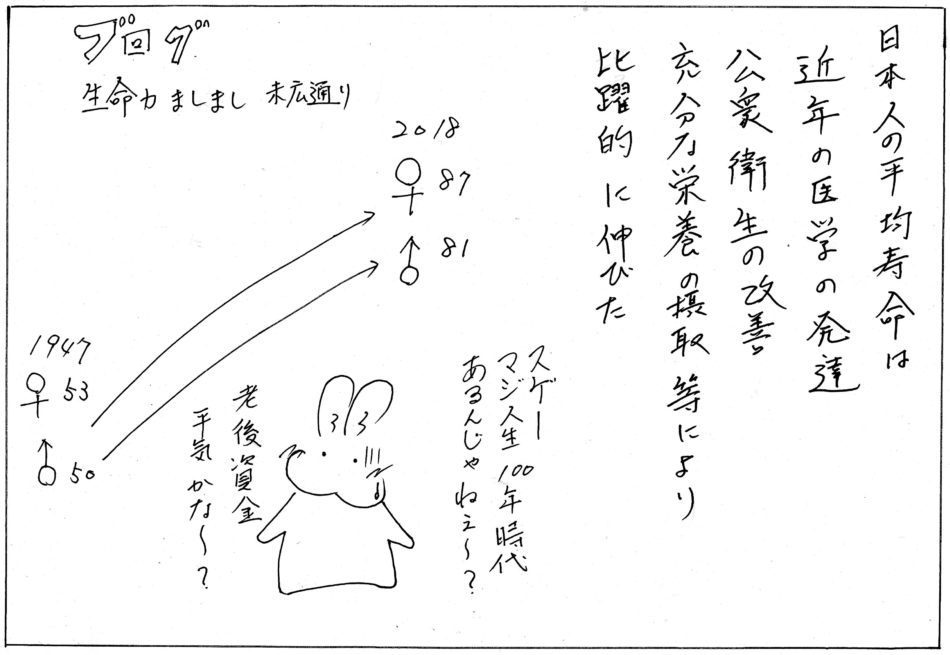 ブログ
生命力ましまし 末広通り
日本人の平均寿命は
近年の医学の発達
公衆衛生の改善
充分な栄養の摂取等により
比躍的に伸びた
2018
♀87
♂81
1947
♀53
♂50
スゲー
マジ人生100年時代
あるんじゃねぇ〜?
老後資金
平気かな〜?